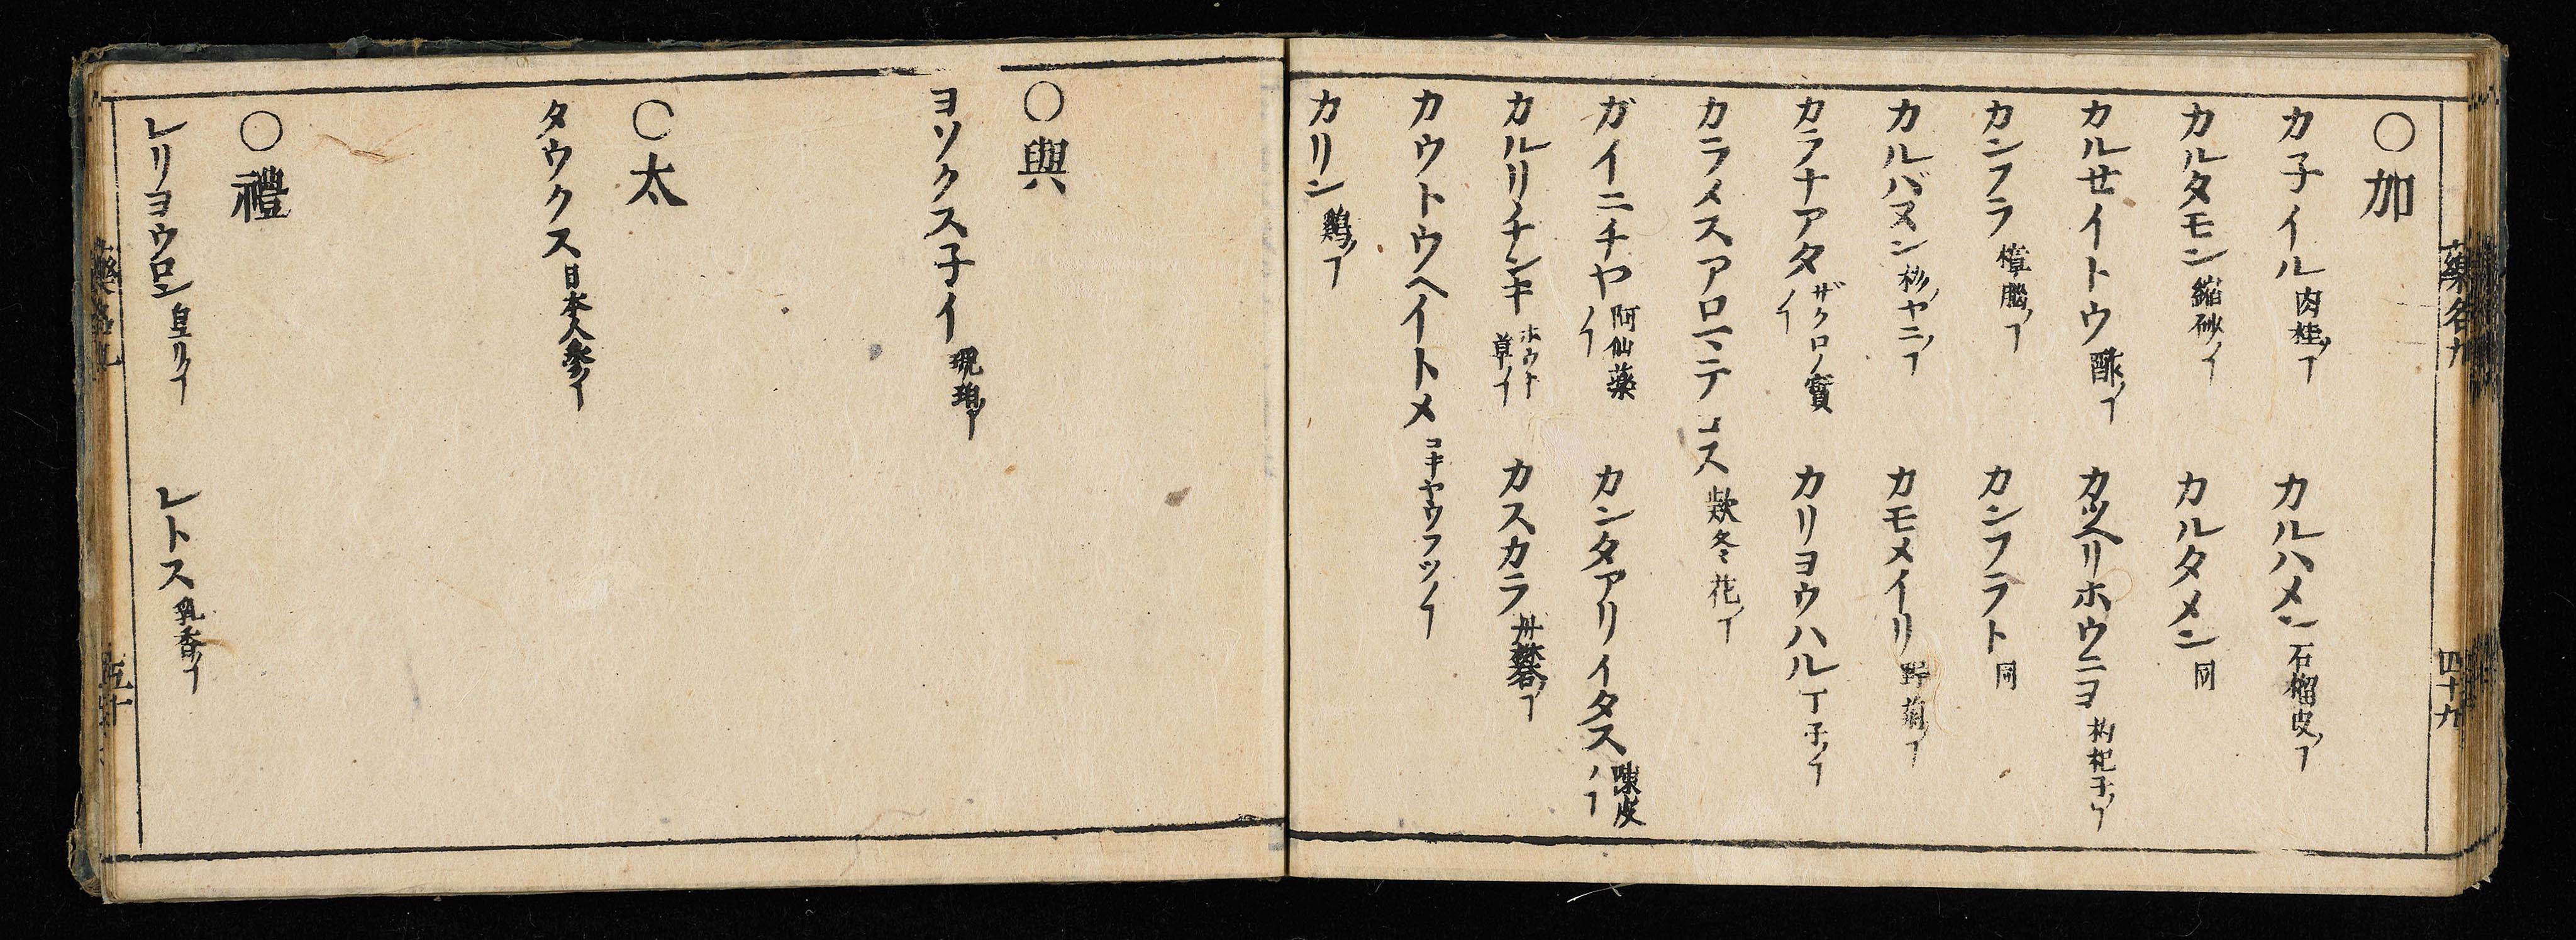 藥名九
四十九
○加
カ子イル 肉桂ノ𪜈
カルハメン 石榴皮ノ𪜈
カルタモン 縮砂ノ𪜈
カルタメン 同
カルせイトウ 酢ノ𪜈
カツヘリホウニヨ 枸杞子ノ𪜈
カンフラ 樟腦ノ𪜈
カンフラト 同
カルバヌン 杉ヤニノ𪜈
カモメイリ 野菊ノ𪜈
カラナアタ ザクロノ實ノ𪜈
カリヨウハル 丁子ノ𪜈
カラメスアロマテコス 欵冬花ノ𪜈
ガイニチヤ 阿仙藥ノ𪜈
カンタアリイタス 陳皮ノ𪜈
カルリチンキ ホウト草ノ𪜈
カスカラ 丹礬ノ𪜈
カウトウヘイトメ コキヤウフツノ𪜈
カリン 鷄ノ𪜈
○與
ヨソクス子イ 琥珀ノ𪜈
○太
タウクス 日本人參ノ𪜈
○禮
レリヨウロン
レトス 乳香ノ𪜈
藥名九
五十